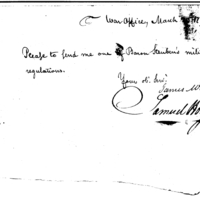 War Office, March
Please to send me one of Baron Steuben's mili
regulations.
Your ob. Serv.
James W
Samuel Ho